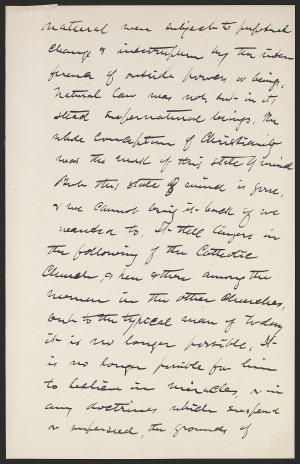 natural were subject to perpetual
change & interruption by the inter
ference of outside powers or beings.
Natural law was not, but in its
stead supernatural beings. The
whole conception of Christianity
was the result of this state of mind
But this state of mind is gone,
& we cannot bring it back if we
wanted to. It still lingers in
the following of the Catholic
Church, & here & there among the
women in the other Churches,
but to the typical man of today
it is no longer possible. It
is no longer possible for him
to believe in miracles, or in
any doctrines which suspend
or supersede, the grounds of